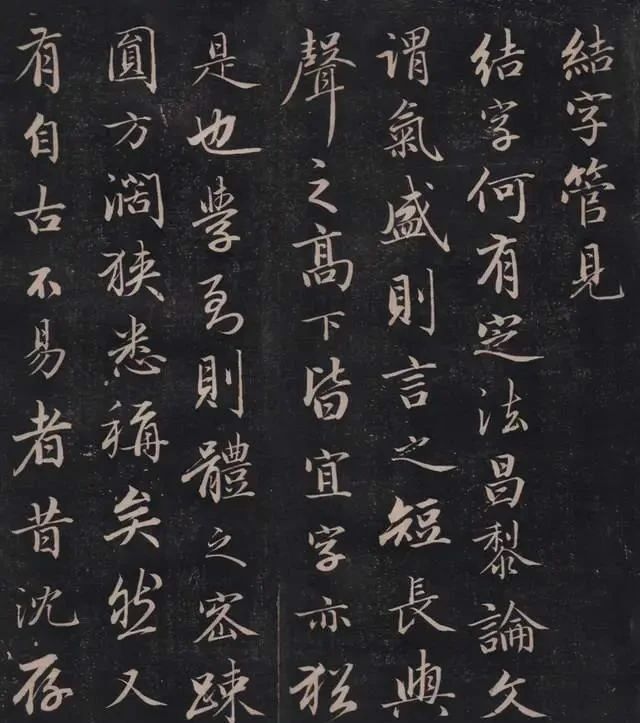 結字管見
結字何有定法昌黎論文
謂氣盛則言之短長與
聲之髙下皆宜字亦猶
是也學到則體之密踈
圓方濶狹悉稱矣然又
有自古不易者昔沈存